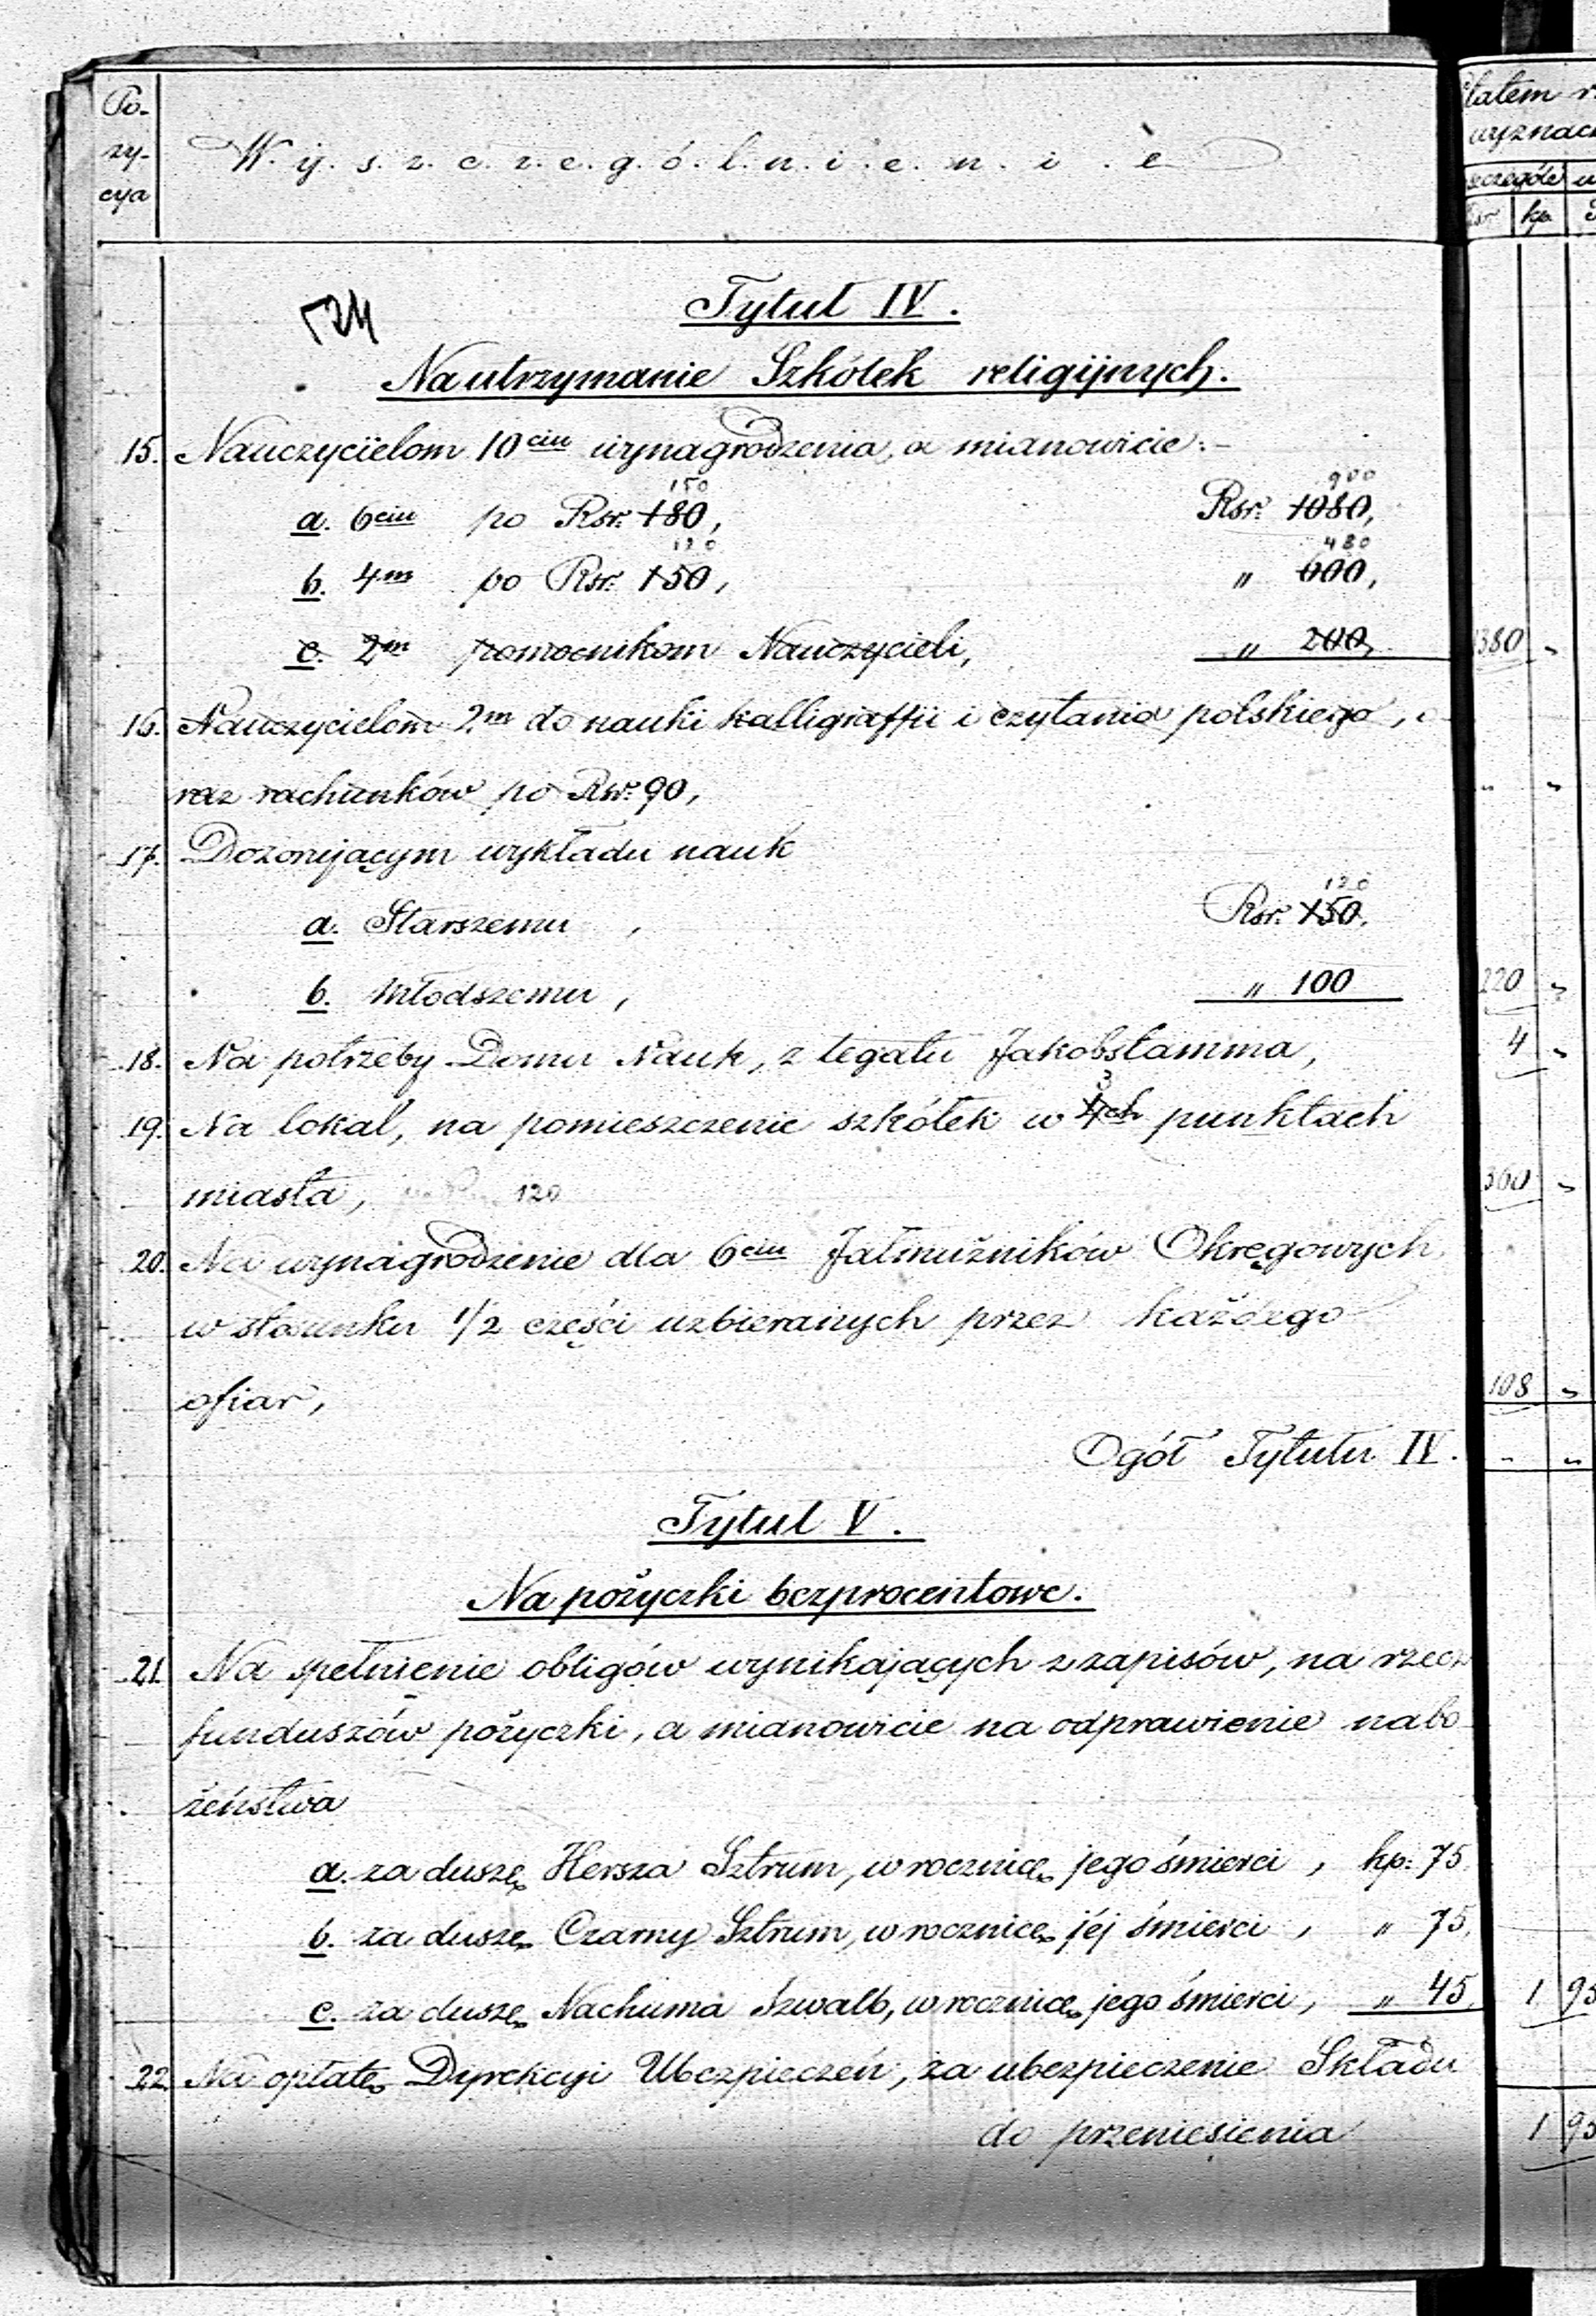 Po-
zy-
cya
W.y.s.z.c.z.e.g.ó.l.n.i.e.n.i.e
Etatem
wyznac
szczególe
Rsr kp.
524
Tytuł IV.
Na utrzymanie Szkółek religijnych.
15. Nauczycielom 10ciu wynagrodzenia, a mianowicie:-
150 900
a. 6ciu po Rsr. 180, Rsr. 1080,
120 480
b. 4m po Rsr. 150, " 600,
c. 2m pomocnikom Nauczycieli, " 200, 1380 "
16. Nauczycielom 2m do nauki kalligraffii i czytania polskiego, o
raz rachunków po Rsr. 90, " "
17. Dozorującym wykładu nauk
120
a. Starszemu, Rsr. 150,
b. Młodszemu, " 100 220 "
18. Na potrzeby Domu Nauk, z legatu Jakobstamma, 4 "
3
19. Na lokal, na pomieszczenie szkółek w 4ch punktach
miasta, 120 360 "
20. Na wynagrodzenie dla 6ciu Jałmużników Okręgowych
w stosunku 1/2 części uzbieranych przez każdego
ofiar, 108 "
Ogół Tytułu IV. " "
Tytuł V.
Na pożyczki bezprocentowe.
21. Na spełnienie obligów wynikających z zapisów, na rzecz
funduszów pożyczki, a mianowicie na odprawienie nabo
żeństwa
a. za duszę Hersza Sztrum, w rocznicę jego śmierci, kp: 75
b. za duszę Czarny Sztrum, w rocznicę jéj śmierci, " 75,
c. za duszę Nachuma Szwalb, w rocznicę jego śmierci, " 45, 1 95
22. Na opłatę Dyrekcyi Ubezpieczeń, za ubezpieczenie Składu
do przeniesienia 1 95